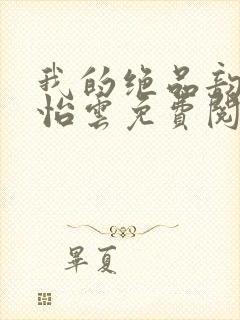 我的绝品
怡雲免費閱
畢夏